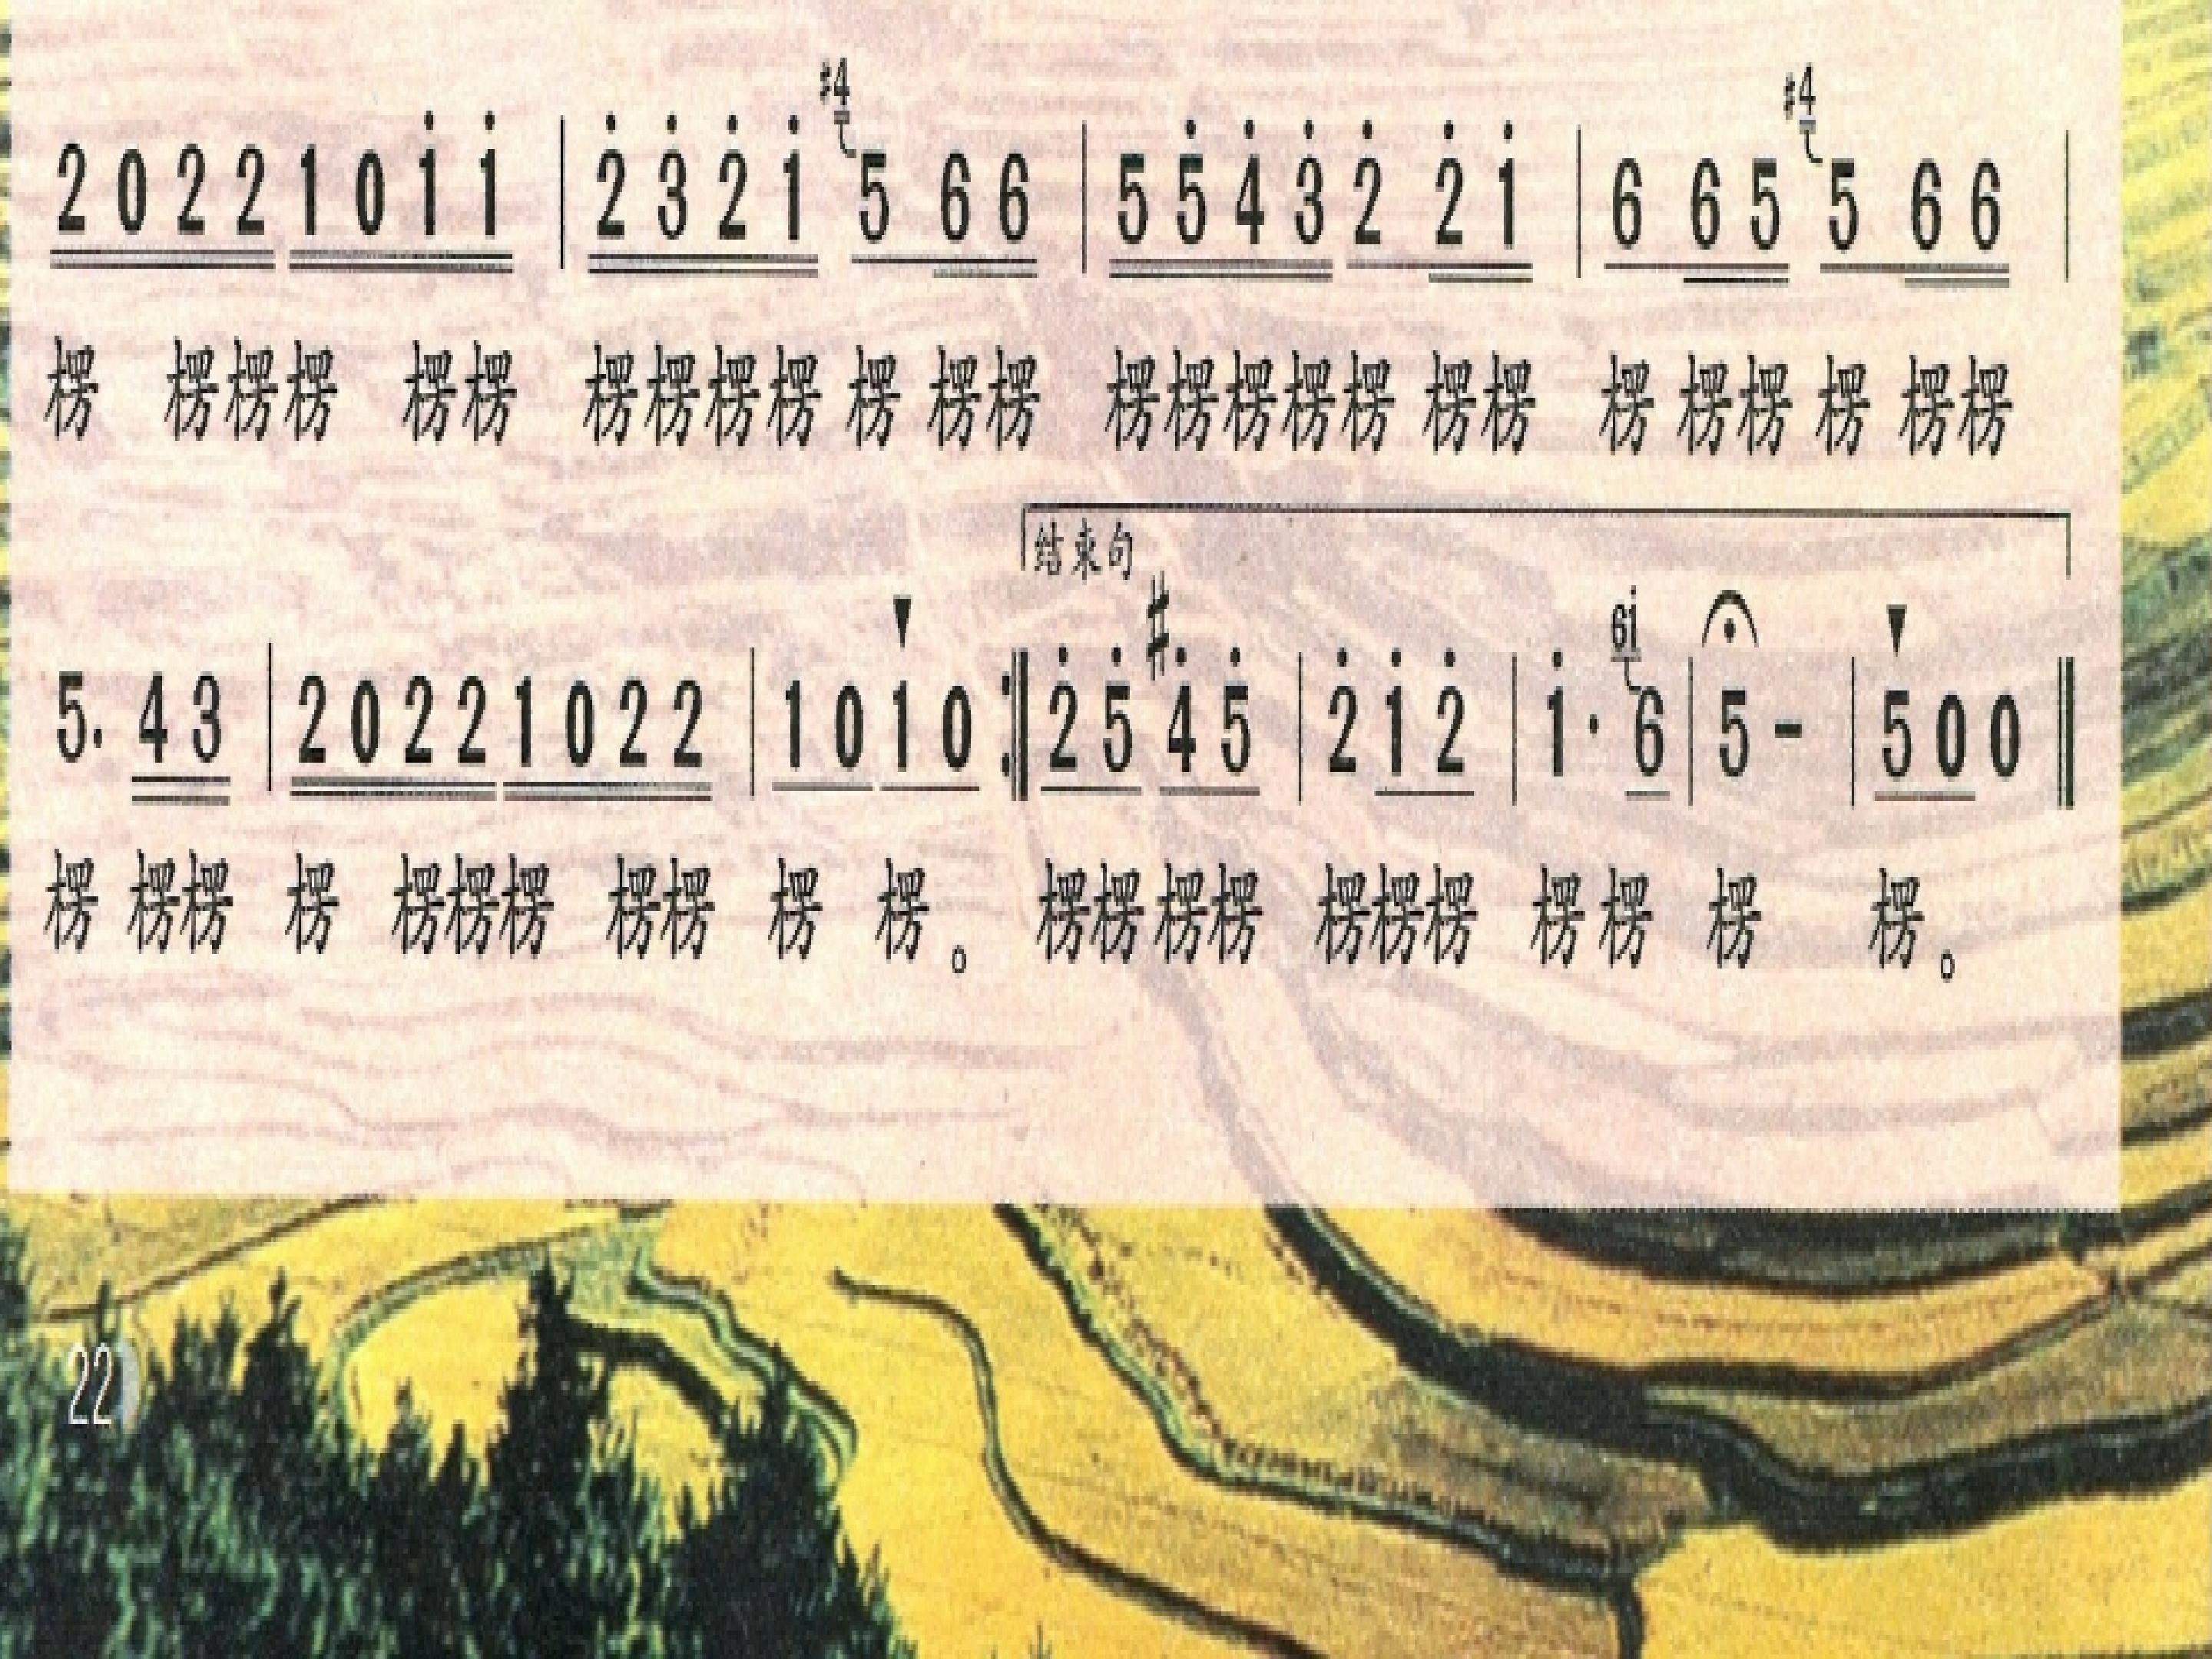 #4 #4
2 0 2 2 1 0 i i | 2̇ 3̇ 2̇ i 5 6 6 | 5 5̇ 4̇ 3̇ 2̇ 2̇ i | 6 6 5 5 6 6 |
楞 楞楞楞 楞楞 楞楞楞楞 楞 楞楞 楞楞楞楞楞 楞楞 楞 楞楞 楞 楞楞
结束句
6i
5. 4 3 | 2 0 2 2 1 0 2 2 | 1 0 1 0 :‖ 2̇ 5̇ #4̇ 5̇ | 2̇ i 2̇ | i· 6 | 5 - | 5 0 0 ‖
楞 楞楞 楞 楞楞楞 楞楞 楞 楞。 楞楞 楞楞 楞楞楞 楞楞 楞 楞。
22